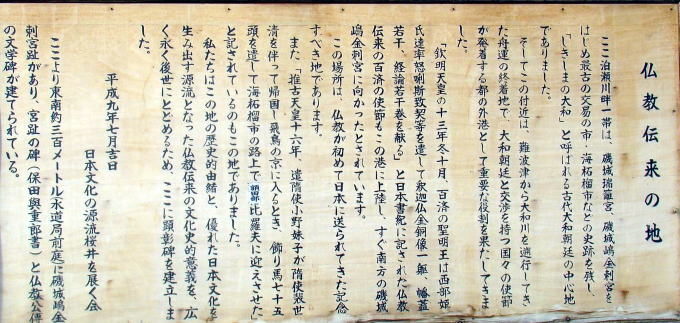 仏教伝来の地
ここ泊瀬川畔一帯は、磯城瑞籬宮、磯城嶋金刺宮を
はじめ最古の交易の市・海柘榴市などの史跡を残し、
「しきしまの大和」と呼ばれる古代大和朝廷の中心地
でありました。
そしてこの付近は、難波津から大和川を遡行してき
た舟運の終着地で、大和朝廷と交渉を持つ国々の使節
が発着する都の外港として重要な役割を果たしてきま
した。
「欽明天皇の十三年冬十月、百済の聖明王は西部姫
氏達率怒唎斯致契等を遣して釈迦仏金銅像一軀、幡蓋
若干、経論若干巻を献る」と日本書紀に記された仏教
伝来の百済の使節もこの港に上陸し、すぐ南方の磯城
嶋金刺宮に向かったとされています。
この場所は、仏教が初めて日本に送られてきた記念
すべき地であります。
また、推古天皇十六年、遣隋使小野妹子が隋使裴世
清を伴って帰国し飛鳥の京に入るとき、飾り馬七十五
頭を遣して海柘榴市の路上で額田部比羅夫に迎えさせた
と記されているのもこの地であります。
私たちはこの地の歴史的由緒と、優れた日本文化を
生み出す源流となった仏教伝来の文化史的意義を、広
く永く後世にとどめるため、ここに顕彰碑を建立しま
した。
平成九年七月吉日
日本文化の源流桜井を展く会
ここより東南約三百メートル(水道局前庭)に磯城嶋金
刺宮趾があり、宮趾の碑(保田與重郎書)と仏教公伝
の文学碑が建てられている。